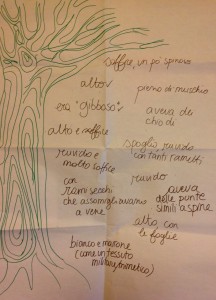 soffice, un po' spinoso
alto
pieno di muschio
era "gibboso"
aveva dei
chio di
alto e soffice
spoglio ruvido
con tanti rametti
ruvido e
molto soffice
ruvido
con
rami secchi
che assomigliavano
a vene
aveva
delle punte
simili a spine
alto, con
le foglie
bianco e marrone
(come un tessuto
militare/mimetico)